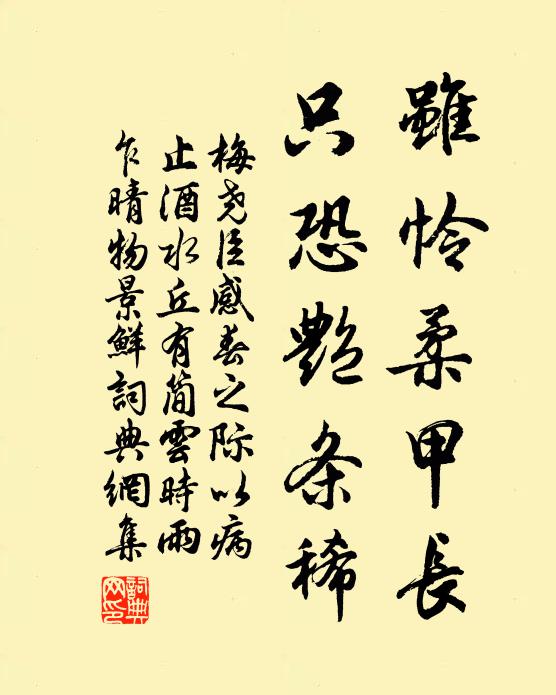 雖怜柔甲長
只恐艷条稀
梅尧臣感春之际以病
止酒水丘有簡雲時雨
乍晴物景鮮詞典網集
詞典網印